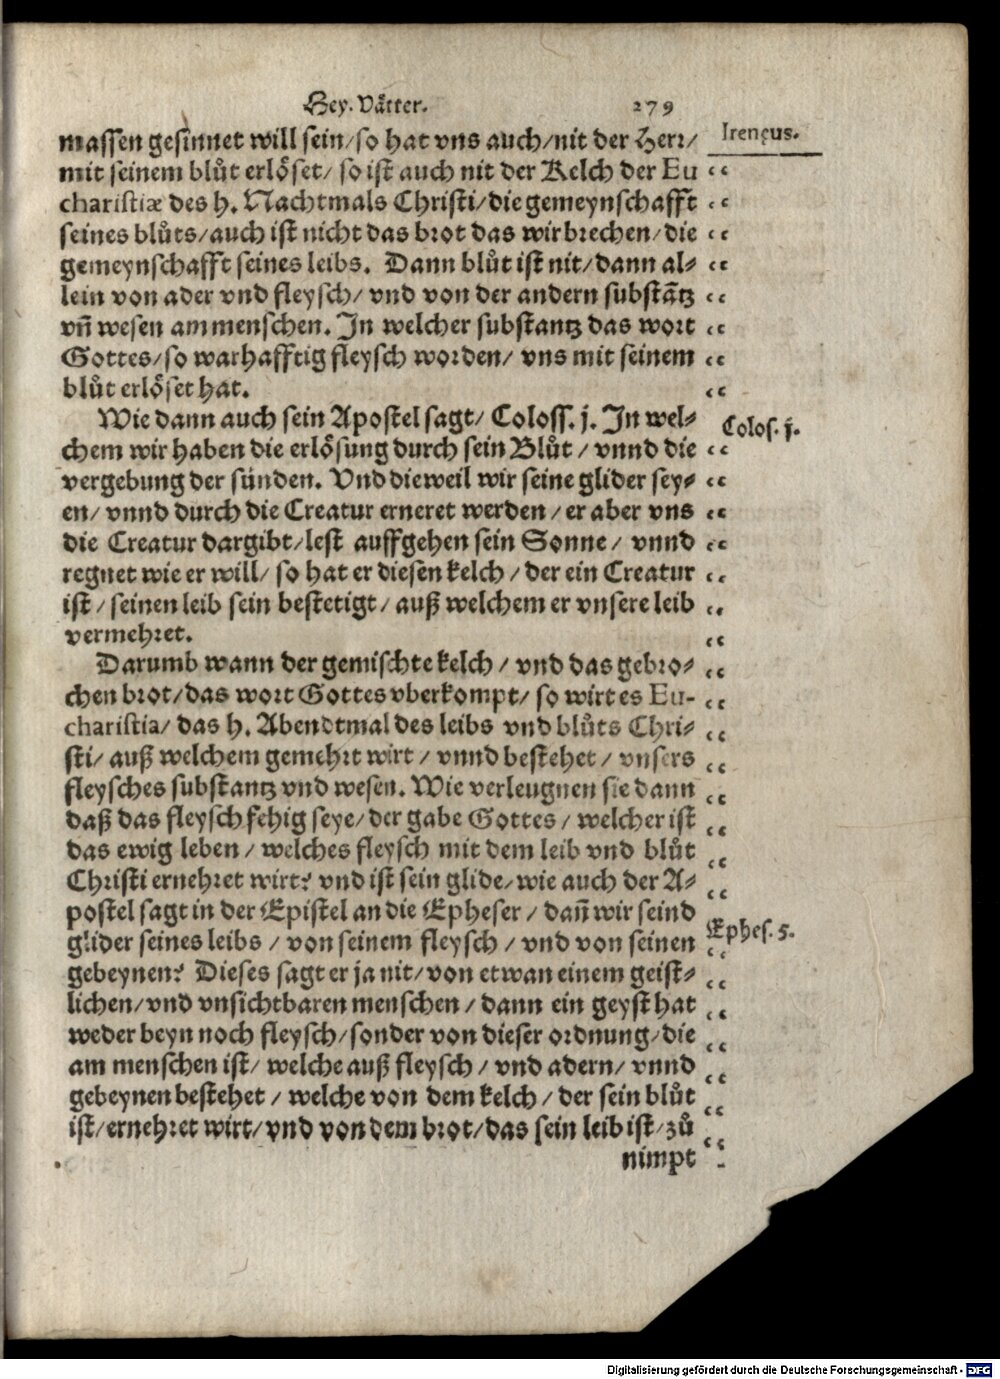 Hey. Vätter. 279
massen gesinnet will sein/so hat vns auch/nit der Herr/
Ireneus.
mit seinem blůt erlöset/ so ist auch nit der Kelch der Eu
charistiæ des h. Nachtmals Christi/die gemeynschafft
seines blůts/auch ist nicht das brot das wir brechen/die
gemeynschafft seines leibs. Dann blůt ist nit/dann al⸗
lein von ader vnd fleysch/ vnd von der andern substātz
vñ wesen am menschen. In welcher substantz das wort
Gottes/so warhafftig fleysch worden/ vns mit seinem
blůt erlöset hat.
Wie dann auch sein Apostel sagt/ Coloss. j. In wel⸗
Colos. j.
chem wir haben die erlösung durch sein Blůt / vnnd die
vergebung der sünden. Vnd dieweil wir seine glider sey⸗
en/ vnnd durch die Creatur erneret werden/ er aber vns
die Creatur dargibt/lest auffgehen sein Sonne/ vnnd
regnet wie er will/ so hat er diesen kelch / der ein Creatur
ist / seinen leib sein bestetigt / auß welchem er vnsere leib
vermehret.
Darumb wann der gemischte kelch / vnd das gebro⸗
chen brot/das wort Gottes vberkompt/ so wirt es Eu-
charistia/ das h. Abendtmal des leibs vnd blůts Chri⸗
sti/ auß welchem gemehrt wirt / vnnd bestehet / vnsers
fleysches substantz vnd wesen. Wie verleugnen sie dann
daß das fleysch fehig seye/der gabe Gottes / welcher ist
das ewig leben / welches fleysch mit dem leib vnd blůt
Christi ernehret wirt? vnd ist sein glide/wie auch der A⸗
postel sagt in der Epistel an die Epheser / dañ wir seind
Ephes. 5.
glider seines leibs / von seinem fleysch / vnd von seinen
gebeynen? Dieses sagt er ja nit/von etwan einem geist⸗
lichen/vnd vnsichtbaren menschen / dann ein geyst hat
weder beyn noch fleysch/sonder von dieser ordnung/die
am menschen ist/ welche auß fleysch / vnd adern/ vnnd
gebeynen bestehet / welche von dem kelch / der sein blůt
ist/ernehret wirt/vnd von dem brot/das sein leib ist/zů
nimpt
Digitalisierung gefördert durch die Deutsche Forschungsgemeinschaft - DFG